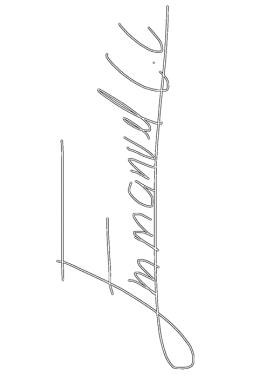 Immanuel C.C